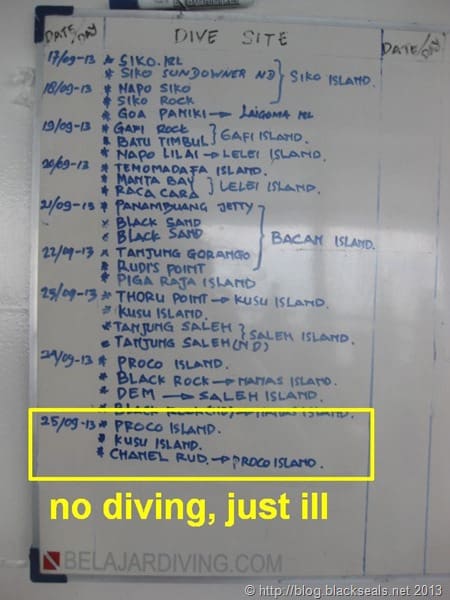 DATE/DAY DIVE SITE DATE/DAY
17/09-13 * SIKO. ISL
* SIKO SUNDOWNER ND } SIKO ISLAND.
18/09-13 * NAPO SIKO
* SIKO ROCK
* GOA PANIKI → LAIGOMA ISL
19/09-13 * GAFI ROCK
* BATU TIMBUL } GAFI ISLAND.
* NAPO LILAI → LELEI ISLAND.
20/09-13 * TEMOMADAFA ISLAND.
* MANTA BAY
* RACA CARA } LELEI ISLAND.
21/09-13 * PANAMBUANG JETTY
* BLACK SAND
* BLACK SAND } BACAN ISLAND.
22/09-13 * TANJUNG GORANGO
* RUDI'S POINT
* PIGA RAJA ISLAND
23/09-13 * THORU POINT → KUSU ISLAND.
* KUSU ISLAND.
* TANJUNG SALEH } SALEH ISLAND.
* TANJUNG SALEH (ND)
24/09-13 * PROCO ISLAND.
* BLACK ROCK → NANAS ISLAND.
* DEM → SALEH ISLAND.
* BLACK ROCK (ND) → NANAS ISLAND.
25/09-13 * PROCO ISLAND.
* KUSU ISLAND.
* CHANEL RUD. → PROCO ISLAND.
no diving, just ill
BELAJARDIVING.COM
© http://blog.blackseals.net 2013